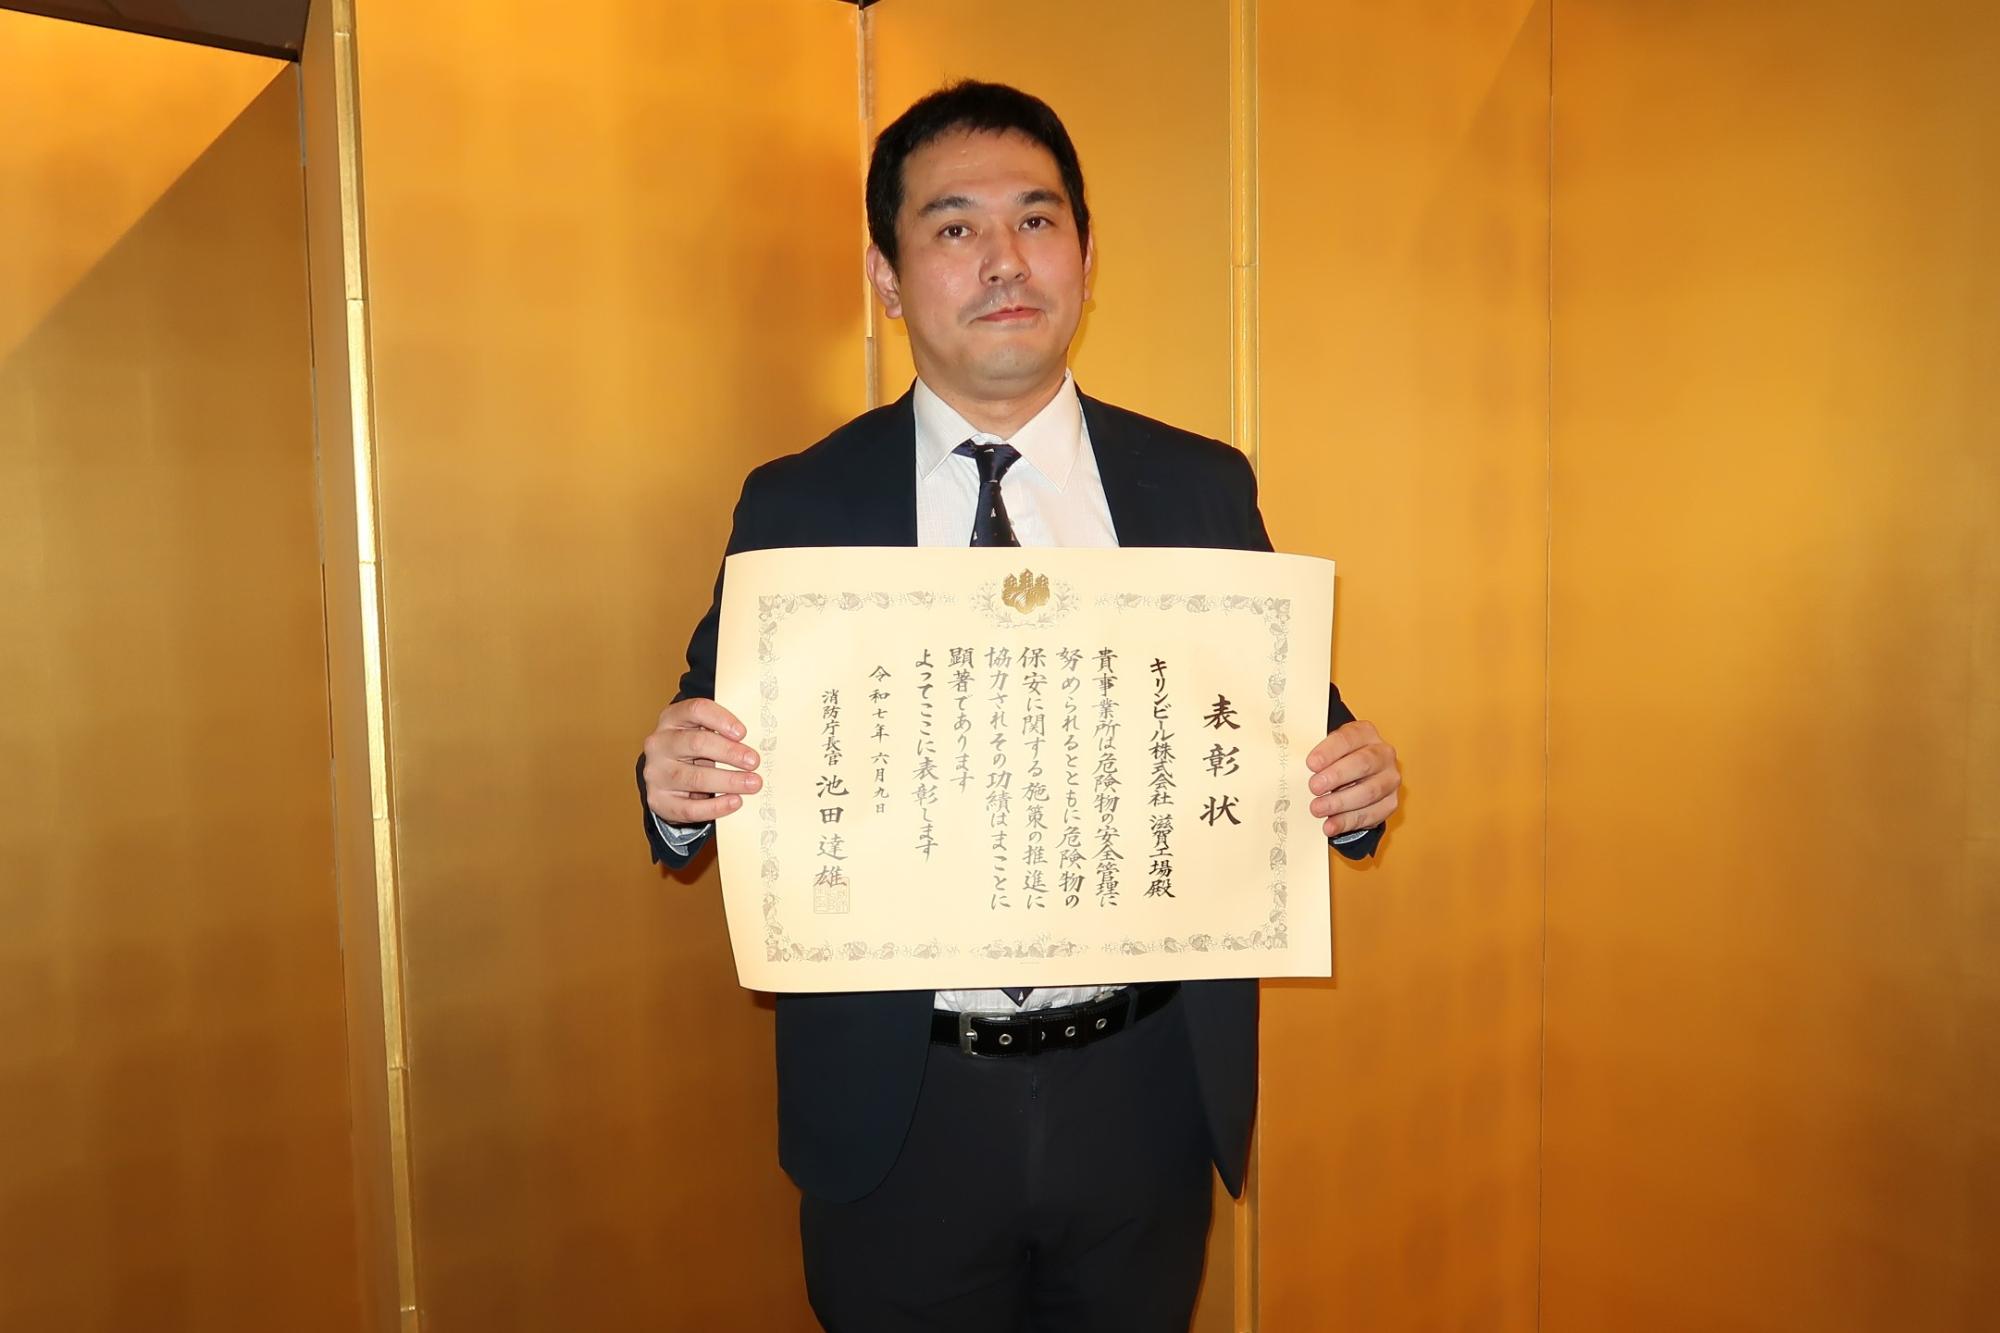 表彰状
キリンビール株式会社 滋賀工場殿
貴事業所は危険物の安全管理に
努められるとともに危険物の
保安に関する施策の推進に
協力されその功績はまことに
顕著であります
よってここに表彰します
令和七年六月九日
消防庁長官 池田達雄